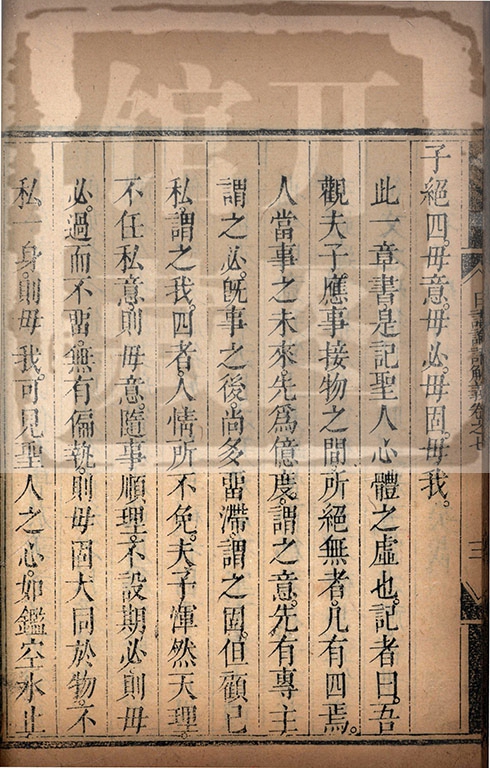 子絕四。毋意。毋必。毋固。毋我。
此一章書是記聖人心體之虛也。記者曰。吾
觀夫子應事接物之間。所絕無者。凡有四焉。
人當事之未來。先爲億度。謂之意。先有專主。
謂之必。旣事之後。尚多畱滯。謂之固。但顧已
私。謂之我。四者。人情所不免。夫子渾然天理。
不任私意。則毋意。隨事順理。不設期必。則毋
必。過而不畱。無有偏執。則毋固。大同於物。不
私一身。則毋我。可見聖人之心。如鑑空水止
日講四書解義卷之七
三